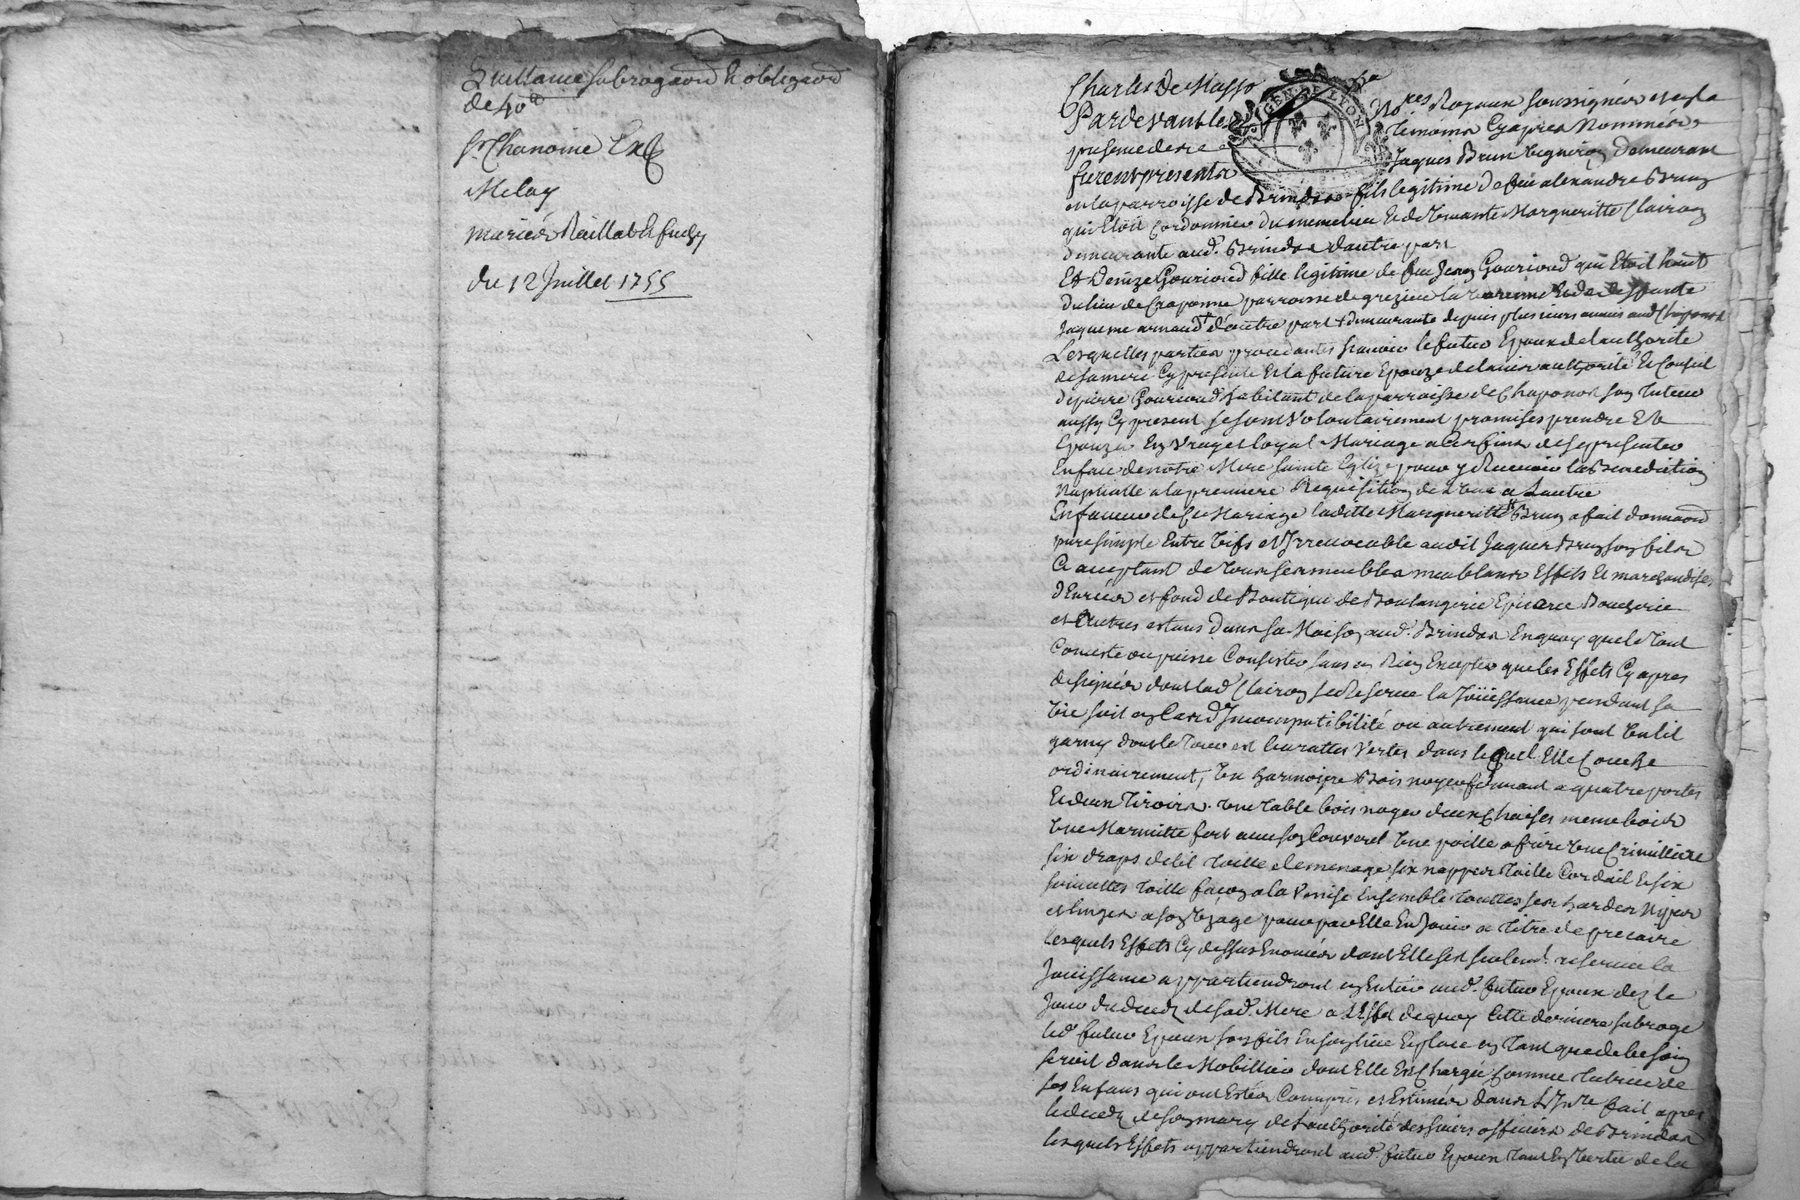 Quittance subrogaõn & obligaõn
de 40 ll
Sr Chanoine
Melay
mariés Raillat &
du 12 Juillet 1755
Charles De Masso
GEN. DE LYON
Pardevant les No.res Royaux soussignés et en la
presence des temoins Cy apres Nommés
furent presents Jaques Brun vigneron demeurant
en la parroisse de Brindas fils legitime de feu alexandre Brun
qui Etoit Cordonnier du meme lieu & de vivante Margueritte Clairon
demeurante aud. Brindas d'autre part
Et Denize Gouriond fille legitime de feu Jean Gouriond qui Etoit
du lieu de Craponne parroisse de grezieu la varenne & de deffunte
Jaqueme arnaud d'autre part + demeurante depuis plusieurs années aud Chaponost
Lesquelles parties procedantes scavoir le futur Epoux de l'authorité
de sa mere Cy presente Et la future Epouze de l'avis authorité & Conseil
de pierre Gouriond habitant de la parroisse de Chaponost son tuteur
aussy Cy present se sont volontairement promises prendre Et
Epouzer En vray et loyal Mariage a Ces fins de se presenter
En face de notre Mere Sainte Eglize pour y Recevoir la Benediction
Nuptialle a la premiere Requisition de L'une a L'autre
En faveur de Ce Mariage laditte Margueritte Brun a fait donnaon
pure simple Entre vifs et Irrevocable audit Jaques Brun son fils
Ce acceptant de tous ses meubles meublants Effets & marchandises
denrées et fond de Boutique de Boulangerie Epicerie Boucherie
et Autres estans dans sa Maison aud. Brindas En quoy que le tout
Conciste ou puisse Consister sans en Rien Excepter que les Effets Cy apres
designés dont lad. Clairon se Reserve la Joüissance pendant sa
vie soit en Cas d'Incompatibilité ou autrement qui sont un lit
garny dont le tour est burattes vertes dans lequel Elle Couche
ordinairement, un garmoire Bois noyer fermant a quatre portes
& deux tiroirs. une table bois noyer deux Chaises meme bois
une Marmitte fert avec son Couvert une poille a frire une Cremilliere
six draps de lit toille de menage six nappes toille Cordail & six
serviettes toille façon a la Venise Ensemble touttes ses hardes Nipes
et linges a son Uzage pour par Elle En Jouir a titre de precaire
Lesquels Effets Cy dessus Enoncés dont Elle s'est seulemt. reservée la
Joüissance appartiendront en Entier aud. futur Epoux des le
Jour du deces de sad. Mere a L'Effet de quoy Cette derniere subroge
led. futur Epoux son fils En son lieu & place en tant que de besoin
seroit dans le Mobillier dont Elle Est Chargée Comme tutrice de
ses Enfans qui ont Estés Compris et Estimés dans L'Inre fait apres
le deces de son mary de L'authorité des sieurs officiers de Brindas
lesquels Effets appartiendront aud. futur Epoux tant En vertu de la